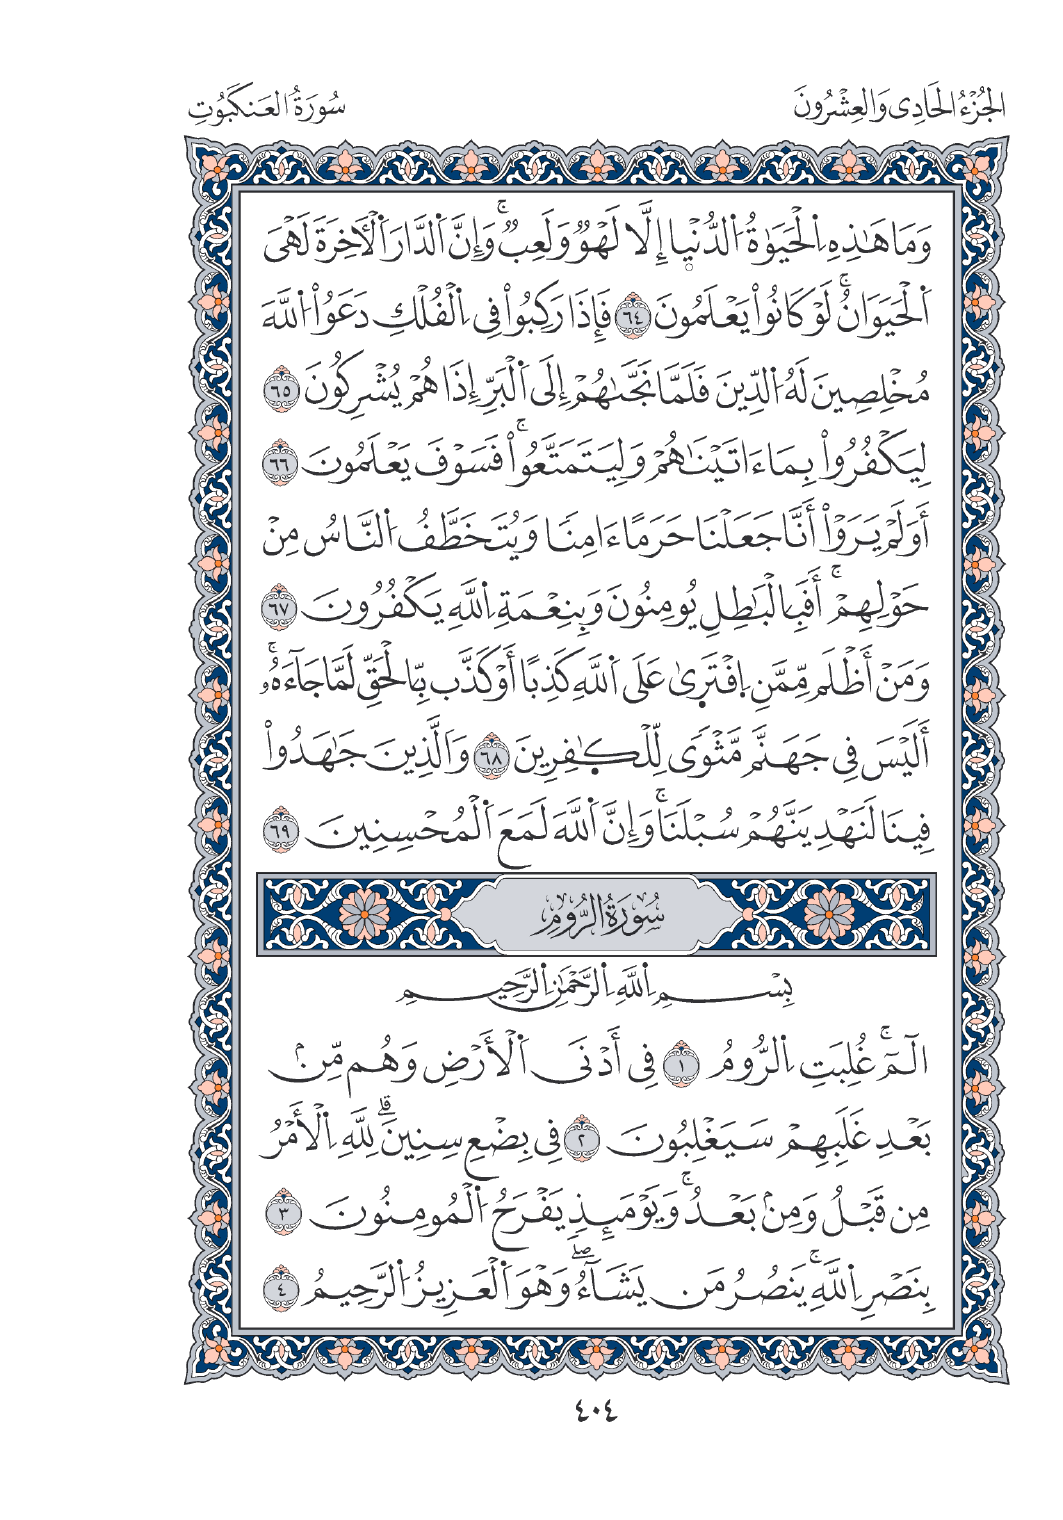 الجُزْءُ الحَادِى وَالعِشْرُونَ
سُورَةُ العَنكَبُوتِ
وَمَا هَٰذِهِ اِ۬لْحَيَوٰةُ اُ۬لدُّنْي۪ا إِلَّا لَهْوٞ وَلَعِبٞۚ وَإِنَّ اَ۬لدَّارَ اَ۬لْأٓخِرَةَ لَهْىَ
اَ۬لْحَيَوَانُۚ لَوْ كَانُواْ يَعْلَمُونَ ٦٤ فَإِذَا رَكِبُواْ فِى اِ۬لْفُلْكِ دَعَوُاْ اُ۬للَّهَ
مُخْلِصِينَ لَهُ اُ۬لدِّينَ فَلَمَّا نَجَّىٰهُمْ إِلَى اَ۬لْبَرِّ إِذَا هُمْ يُشْرِكُونَ ٦٥
لِيَكْفُرُواْ بِمَا ءَاتَيْنَٰهُمْ وَلِيَتَمَتَّعُواْۚ فَسَوْفَ يَعْلَمُونَ ٦٦
أَوَلَمْ يَرَوْاْ أَنَّا جَعَلْنَا حَرَمًا ءَامِنٗا وَيُتَخَطَّفُ اُ۬لنَّاسُ مِنْ
حَوْلِهِمْۚ أَفَبِالْبَٰطِلِ يُومِنُونَ وَبِنِعْمَةِ اِ۬للَّهِ يَكْفُرُونَ ٦٧
وَمَنْ أَظْلَم مِّمَّنِ اِ۪فْتَر۪ىٰ عَلَى اَ۬للَّهِ كَذِبًا أَوْ كَذَّب بِّالْحَقِّ لَمَّا جَآءَهُۥۚ
أَلَيْسَ فِى جَهَنَّم مَّثْوٗى لِّلْكٰ۪فِرِينَ ٦٨ وَالَّذِينَ جَٰهَدُواْ
فِينَا لَنَهْدِيَنَّهُمْ سُبْلَنَاۚ وَإِنَّ اَ۬للَّهَ لَمَعَ اَ۬لْمُحْسِنِينَ ٦٩
سُورَةُ الرُّومِ
بِسْمِ اِ۬للَّهِ اِ۬لرَّحْمَٰنِ اِ۬لرَّحِيمِ
الٓمٓۚ غُلِبَتِ اِ۬لرُّومُ ١ فِى أَدْنَى اَ۬لْأَرْضِ وَهُم مِّنۢ
بَعْدِ غَلَبِهِمْ سَيَغْلِبُونَ ٢ فِى بِضْعِ سِنِينَۗ لِلَّهِ اِ۬لْأَمْرُ
مِن قَبْلُ وَمِنۢ بَعْدُۚ وَيَوْمَئِذٖ يَفْرَحُ اُ۬لْمُومِنُونَ ٣
بِنَصْرِ اِ۬للَّهِۚ يَنصُرُ مَن يَشَآءُۖ وَهْوَ اَ۬لْعَزِيزُ اُ۬لرَّحِيمُ ٤
٤٠٤